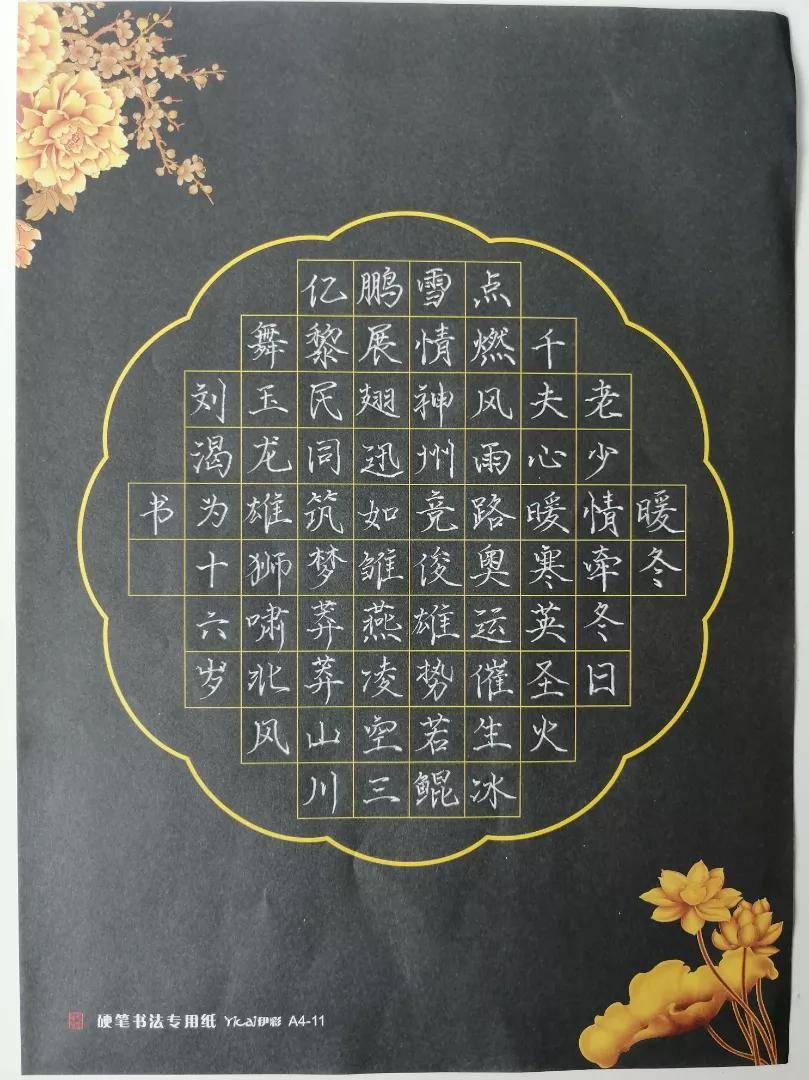 暖冬
老少情牵冬日
千夫心暖寒英圣火
点燃风雨路奥运催生冰
雪情神州竞俊雄势若鲲
鹏展翅迅如雏燕凌空三
亿黎民同筑梦莽莽山川
舞玉龙雄狮啸北风
刘渴为十六岁
书
硬笔书法专用纸 Yicai伊彩 A4-11